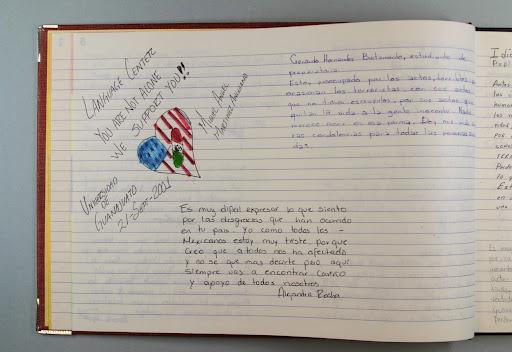 LANGUAGE CENTER
YOU ARE NOT ALONE
WE SUPPORT YOU!!
UNIVERSIDAD
DE
GUANAJUATO
21-SEPT-2001
Gerardo Hernández Bustamante, estudiante de
preparatoria.
Estoy preocupado por los actos terribles q
ocasionan los terroristas con sus actos
que no tienen escrupulos, por sus actos que
quitan la vida a la gente inocente. Nadie
merece morir en esa forma. Doy mis más si
ras condolencias para todas las personas
das.
Es muy difícil expresar lo que siento
por las desgracias que han ocurrido
en tu país. Yo como todos los -
Mexicanos estoy muy triste, porque
creo que a todos nos ha afectado
y no sé que mas decirte pero aquí
siempre vas a encontrar cariño
y apoyo de todos nosotros.
Alejandra Rocha